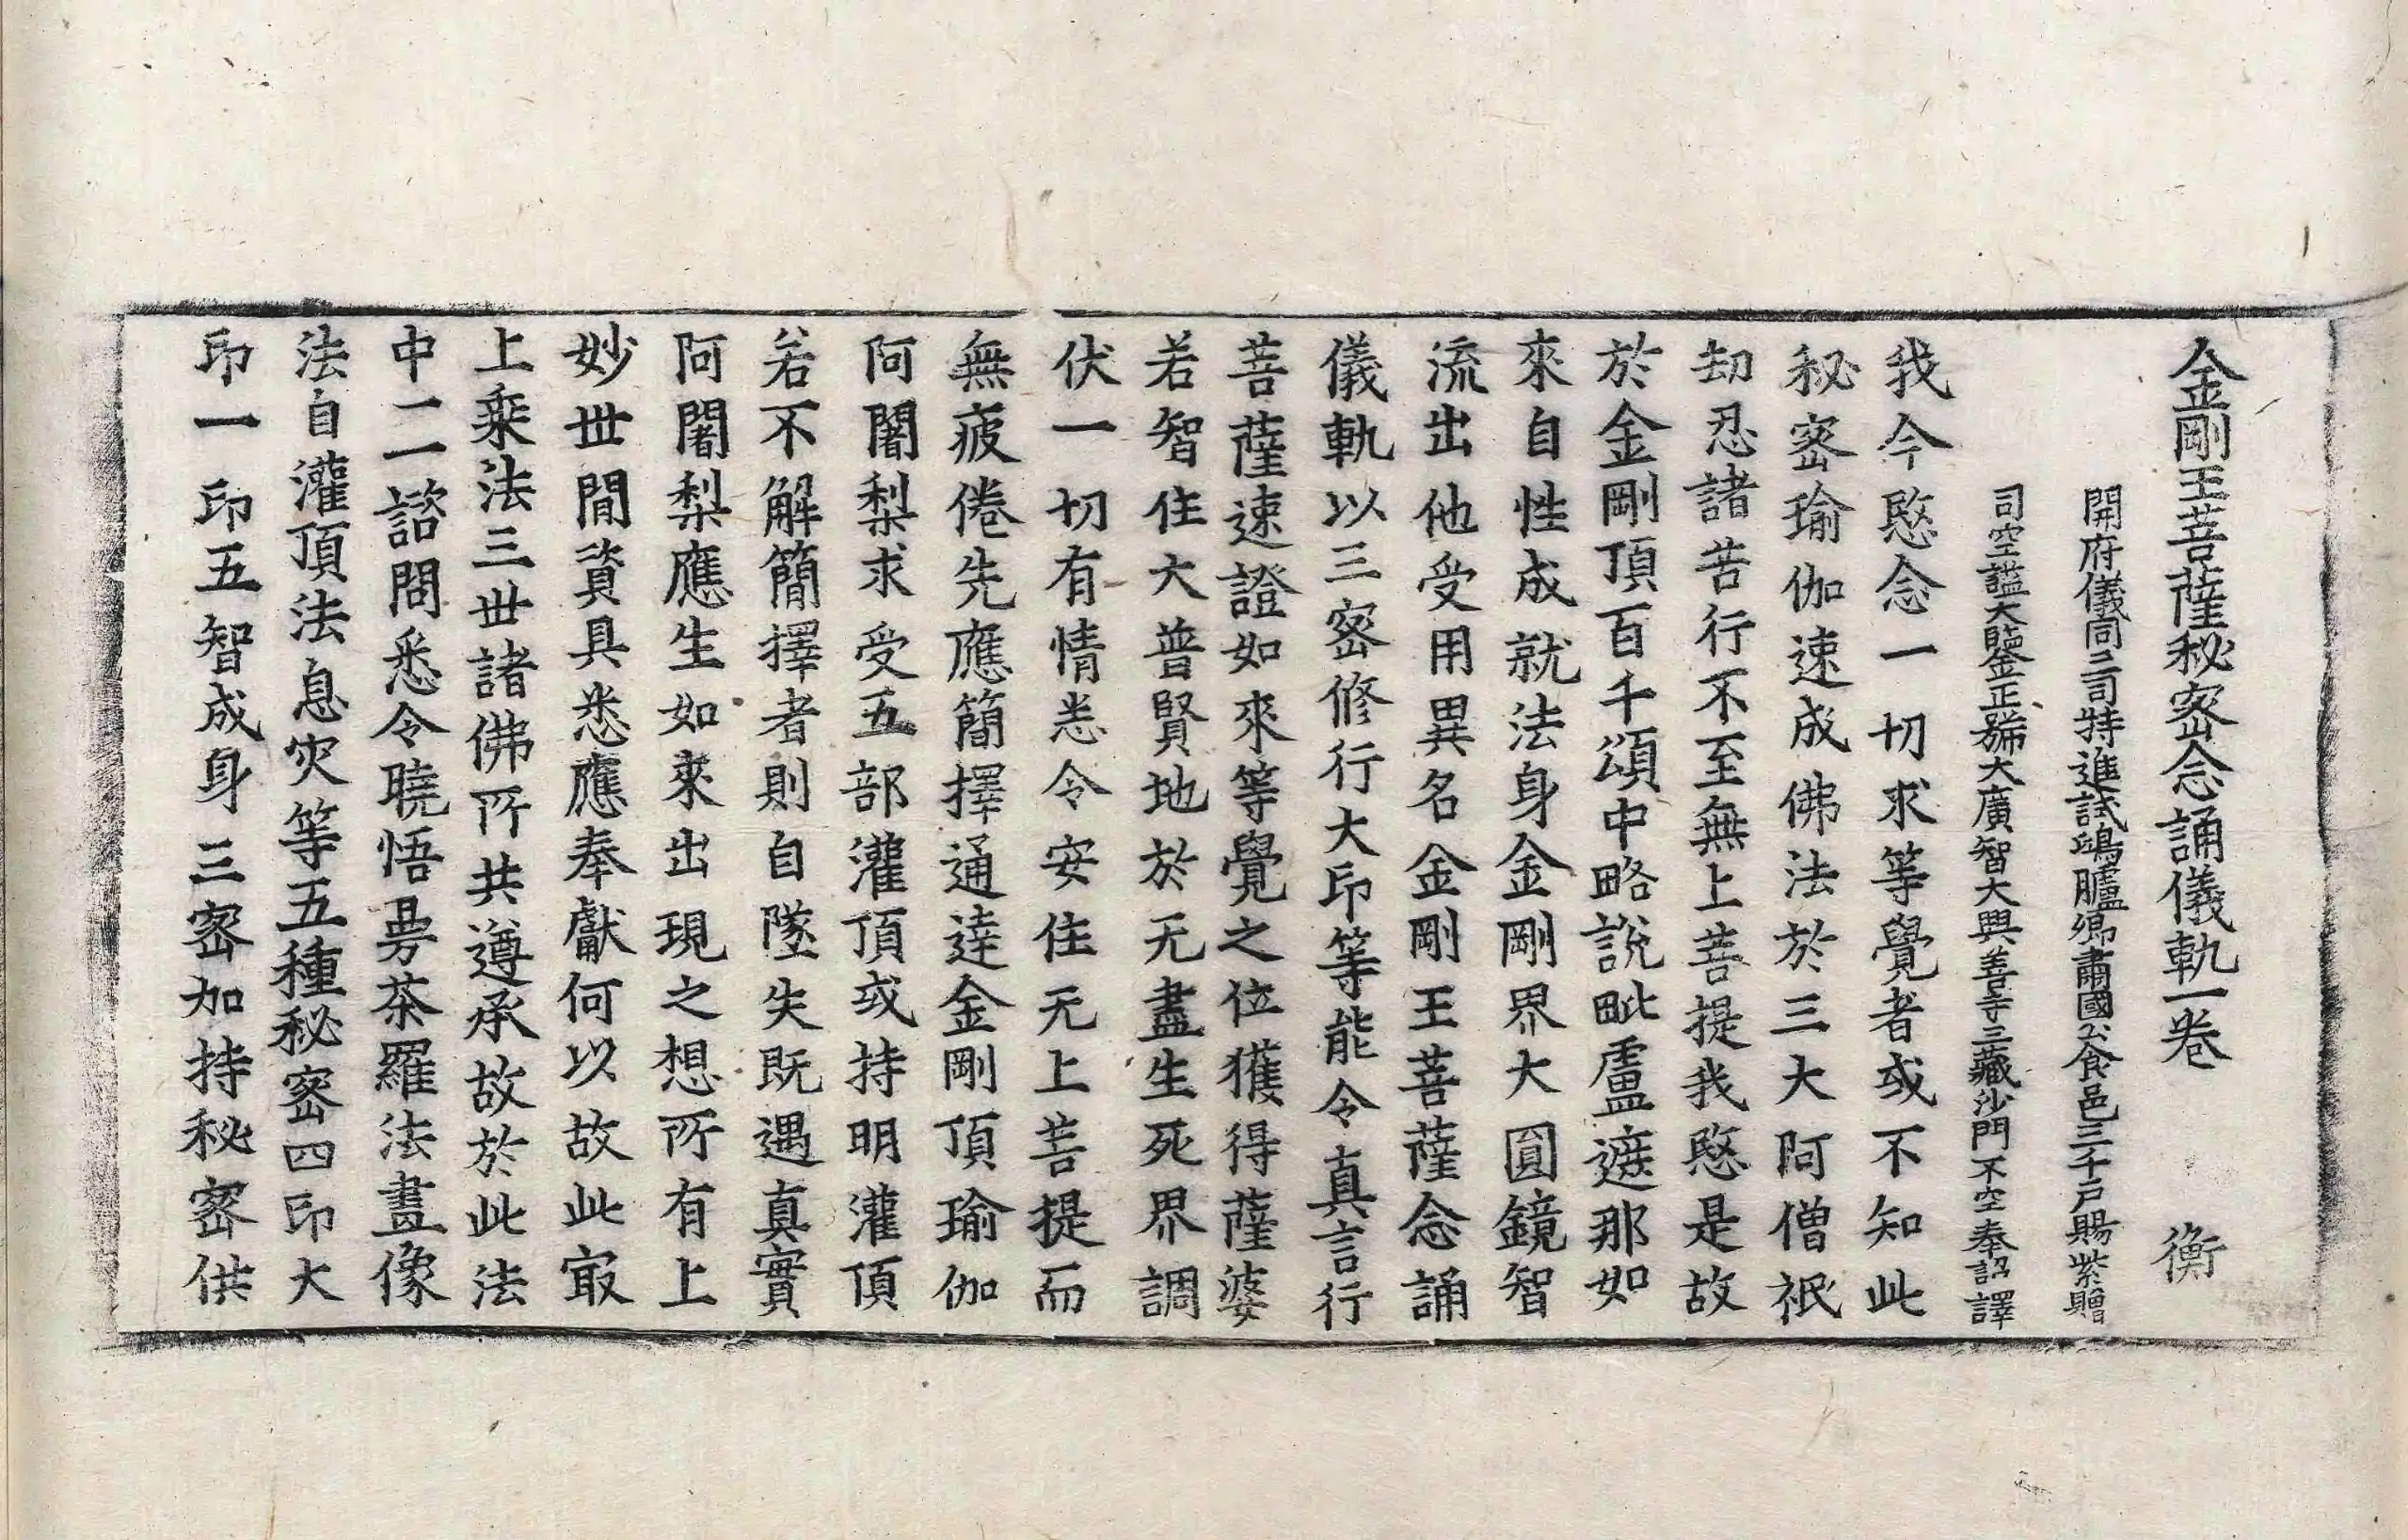 金剛王菩薩秘密念誦儀軌一卷 衡
開府儀同三司特進試鴻臚卿肅國公食邑三千戶賜紫贈
司空謚大鑒正號大廣智大興善寺三藏沙門不空奉詔譯
我今愍念一切求等覺者或不知此
秘密瑜伽速成佛法於三大阿僧祇
劫忍諸苦行不至無上菩提我愍是故
於金剛頂百千頌中略說毗盧遮那如
來自性成就法身金剛界大圓鏡智
流出他受用異名金剛王菩薩念誦
儀軌以三密修行大印等能令真言行
菩薩速證如來等覺之位獲得薩婆
若智住大普賢地於无盡生死界調
伏一切有情悉令安住无上菩提而
無疲倦先應簡擇通達金剛頂瑜伽
阿闍梨求受五部灌頂或持明灌頂
若不解簡擇者則自墜失既遇真實
阿闍梨應生如來出現之想所有上
妙世間資具悉應奉獻何以故此㝡
上乘法三世諸佛所共遵承故於此法
中一一諮問悉令曉悟曼荼羅法畫像
法自灌頂法息灾等五種秘密四印大
印一印五智成身三密加持秘密供